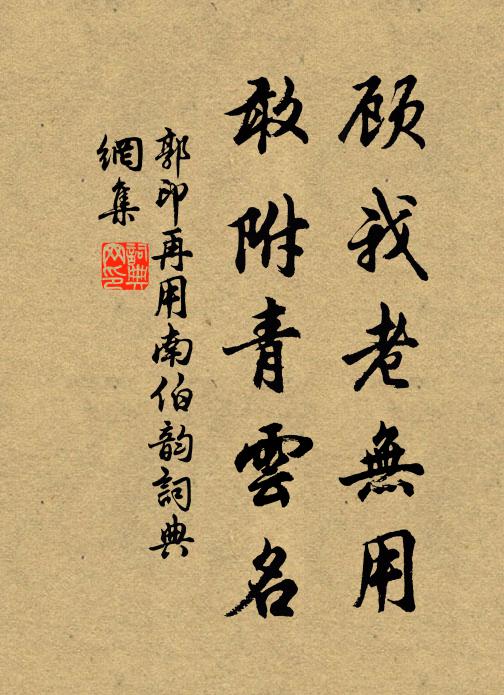 顾我老無用
敢附青雲名
郭印再用南伯韵詞典
網集
詞典
网印